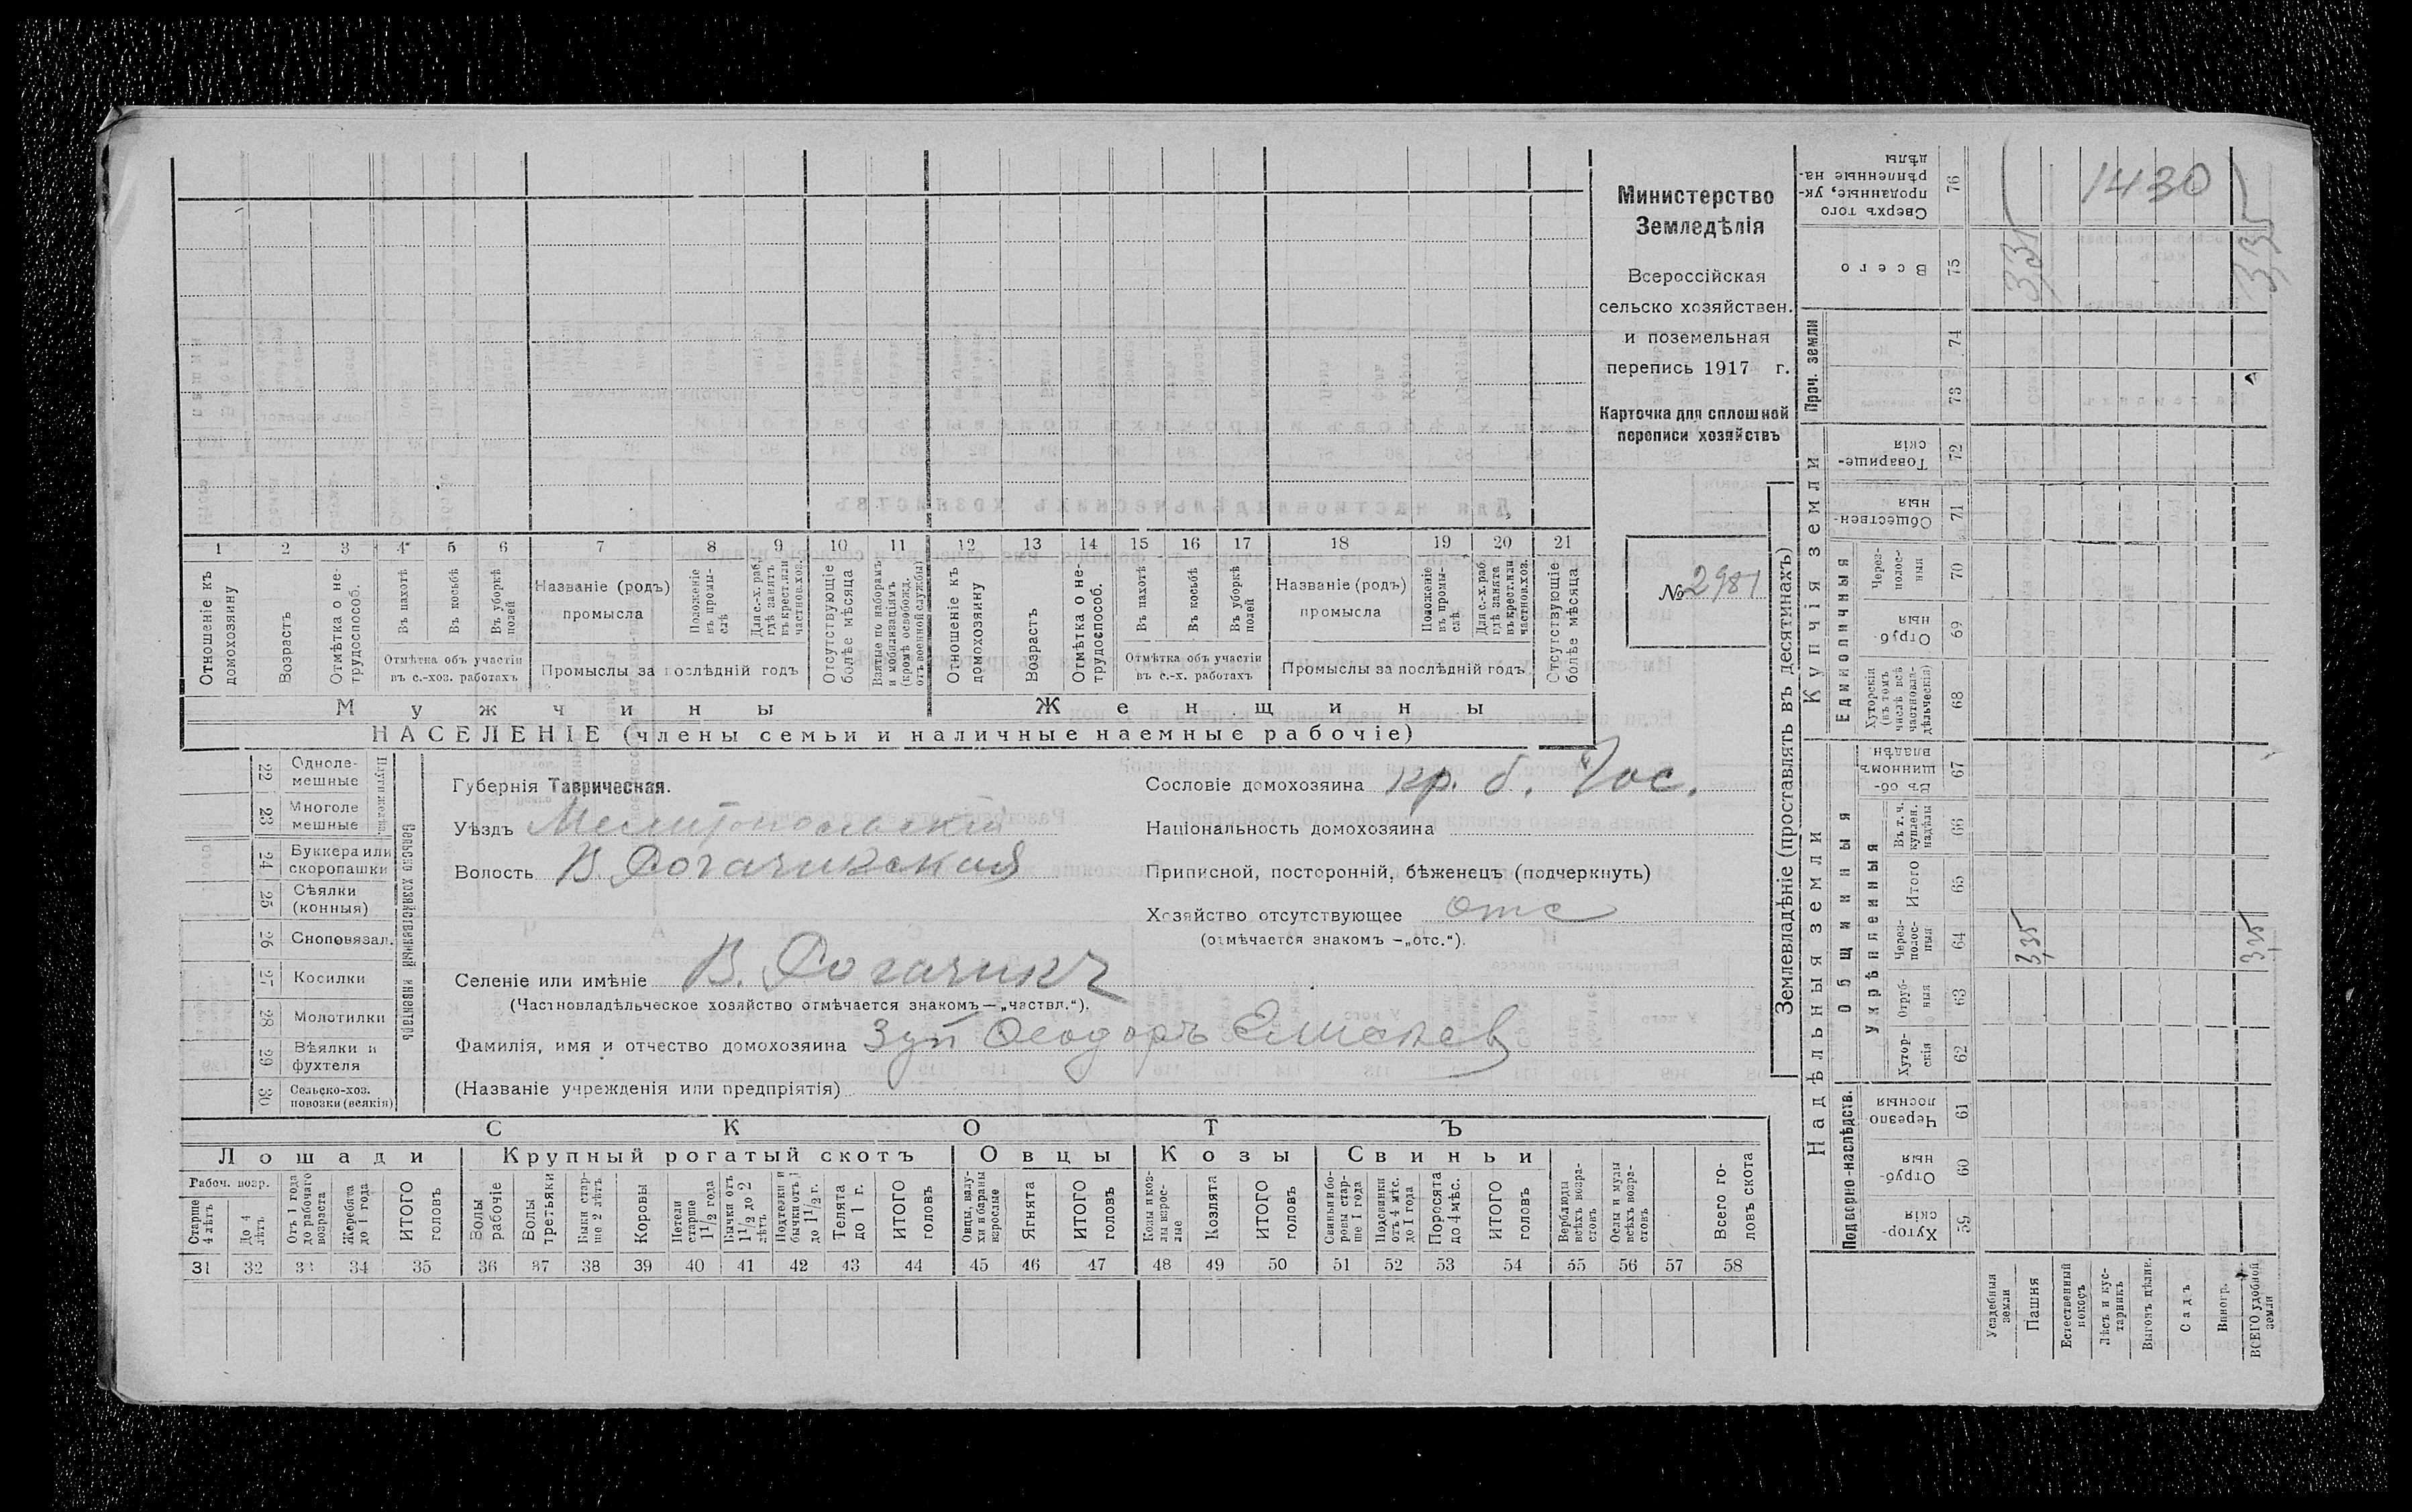 Министерство
Земледѣлія
Всероссійская
сельско хозяйствен.
и поземельная
перепись 1917 г.
Карточка для сплошной
переписи хозяйствъ
№ 2981
1 2 3 4 5 6 7 8 9 10 11 12 13 14 15 16 17 18 19 20 21
Отношеніе къ домохозяину
Возрастъ
Отмѣтка о не-трудоспособ.
Въ пахотѣ
Въ косьбѣ
Въ уборкѣ полей
Отмѣтка объ участіи
въ с.-хоз. работахъ
Названіе (родъ)
промысла
Положеніе въ промы-слѣ
Для с.-х.-раб. гдѣ занятъ въ крест. или частнов.хоз.
Промыслы за послѣдній годъ
Отсутствующіе болѣе мѣсяца
Взятые по наборамъ и мобилизаціямъ (кромѣ освобожд. отъ военной службы)
Отношеніе къ домохозяину
Возрастъ
Отмѣтка о не-трудоспособ.
Въ пахотѣ
Въ косьбѣ
Въ уборкѣ полей
Отмѣтка объ участіи
въ с.-х. работахъ
Названіе (родъ)
промысла
Положеніе въ промы-слѣ
Для с.-х.-раб. гдѣ занята въ крест. или частнов.хоз.
Промыслы за послѣдній годъ
Отсутствующіе болѣе мѣсяца
Мужчины
Женщины
НАСЕЛЕНІЕ (члены семьи и наличные наемные рабочіе)
Сельско хозяйственный инвентарь
22 Одноле-мешные
23 Многоле мешные
24 Буккера или скоропашки
25 Сѣялки (конныя)
26 Сноповязал.
27 Косилки
28 Молотилки
29 Вѣялки и фухтеля
30 Сельско-хоз. повозки (всякія)
Губернія Таврическая.
Уѣздъ Мелитопольскій
Волость В. Рогачикская
Селеніе или имѣніе В. Рогачикъ
(Частновладѣльческое хозяйство отмѣчается знакомъ—„частвл.“).
Фамилія, имя и отчество домохозяина Зуй Ѳеодоръ
(Названіе учрежденія или предпріятія)
Сословіе домохозяина кр. б. Гос.
Національность домохозяина
Приписной, посторонній, бѣженецъ (подчеркнуть)
Хозяйство отсутствующее отс
(отмѣчается знакомъ —„отс.“).
СКОТЪ
Лошади
Крупный рогатый скотъ
Овцы
Козы
Свиньи
Рабоч. возр.
Старше 4 лѣтъ
До 4 лѣтъ
Отъ 1 года до рабочаго возраста
Жеребята до 1 года
ИТОГО головъ
Волы рабочіе
Волы третьяки
Быки стар-ше 2 лѣтъ
Коровы
Нетели старше 1 1/2 года
Бычки отъ 1 1/2 до 2 лѣтъ
Подтелки и бычки отъ 1 до 1 1/2 г.
Телята до 1 г.
ИТОГО головъ
Овцы, валу-хи и бараны взрослые
Ягнята
ИТОГО головъ
Козы и коз-лы взрос-лые
Козлята
ИТОГО головъ
Свиньи и бо-ровы стар-ше 1 года
Подсвинки отъ 4 мѣс. до 1 года
Поросята до 4 мѣс.
ИТОГО головъ
Верблюды всѣхъ возра-стовъ
Ослы и мулы всѣхъ возра-стовъ
Всего го-ловъ скота
31 32 33 34 35 36 37 38 39 40 41 42 43 44 45 46 47 48 49 50 51 52 53 54 55 56 57 58
Землевладѣніе (проставлять въ десятинахъ)
Купчія земли
Надѣльныя земли
Проч. земли
Единоличныя
Общинныя
Укрѣпленныя
Подворно-наслѣдств.
Сверхъ того проданные, ук-рѣпленные на-дѣлы 76
Всего 75
74
73
Товарище-скія 72
Обществен-ныя 71
Через-полос-ныя 70
Отруб-ныя 69
Хуторскія (въ томъ числѣ всѣ частновла-дѣльческія) 68
Въ об-щинномъ владѣн. 67
Въ т. ч. куплен. надѣлы 66
Итого 65
Через-полос-ныя 64
Отруб-ныя 63
Хутор-скія 62
Черезпо лосныя 61
Отруб-ныя 60
Хутор-скія 59
Усадебныя земли
Пашня
Естественный покосъ
Лѣсъ и кус-тарникъ
Выгонъ цѣлин.
Садъ
Виногр.
ВСЕГО удобной земли
1430
3,35
3,35
3,35
3,35